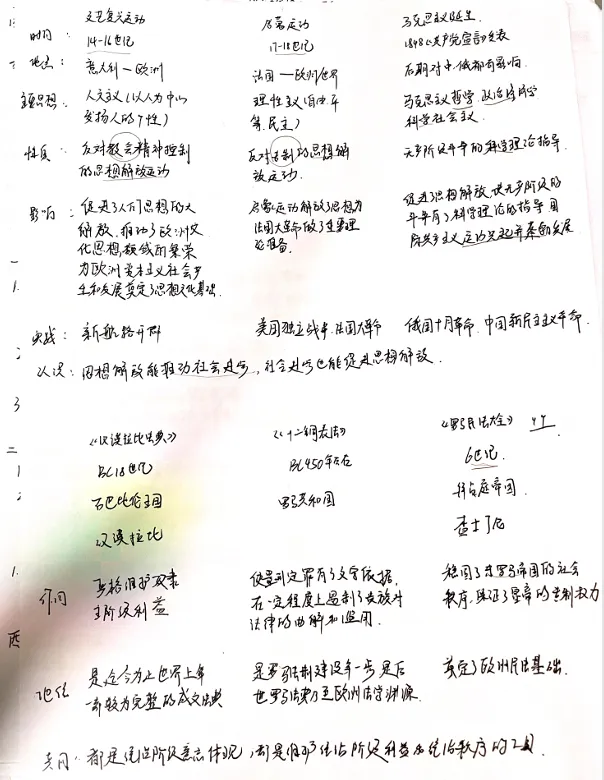 文艺复兴运动 启蒙运动 马克思主义诞生
时间: 14-16世纪 17-18世纪 1848《共产党宣言》发表
地点: 意大利—欧洲 法国—欧洲世界 后期对中.俄都有影响.
主要思想: 人文主义(以人为中心 理性主义(自由平 马克思主义哲学,政治经济学
发扬人的个性) 等.民主) 科学社会主义.
性质: 反对教会精神控制 反对专制的思想解 无产阶级斗争的科学理论指导.
的思想解放运动 放运动.
影响: 促进了人们思想的大 启蒙运动解放了思想为 促进了思想解放,使无产阶级的
解放,推动了欧洲文 法国大革命做了重要理 斗争有了科学理论的指导,国
化思想领域的繁荣 论准备. 际共产主义运动兴起并蓬勃发展
为欧洲资本主义社会产
生和发展奠定了思想文化基础.
实践: 新航路开辟 美国独立战争.法国大革命 俄国十月革命,中国新民主主义革命.
认识: 思想解放能推动社会进步,社会进步也能促进思想解放.
《汉谟拉比法典》 《十二铜表法》 《罗马民法大全》
BC18世纪 BC450年左右 6世纪.
古巴比伦王国 罗马共和国 拜占庭帝国.
汉谟拉比 查士丁尼
作用 严格维护奴隶 使量刑定罪有了文字依据, 稳固了东罗马帝国的社会
主阶级利益 在一定程度上遏制了贵族对 秩序,保证了皇帝的专制权力
法律的曲解和滥用.
地位 是迄今为止世界上第 是罗马法制建设第一步是后 奠定了欧洲民法基础.
一部较为完整的成文法典 世罗马法乃至欧洲法学渊源.
共同: 都是统治阶级意志体现,都是维护统治阶级利益及统治秩序的工具.